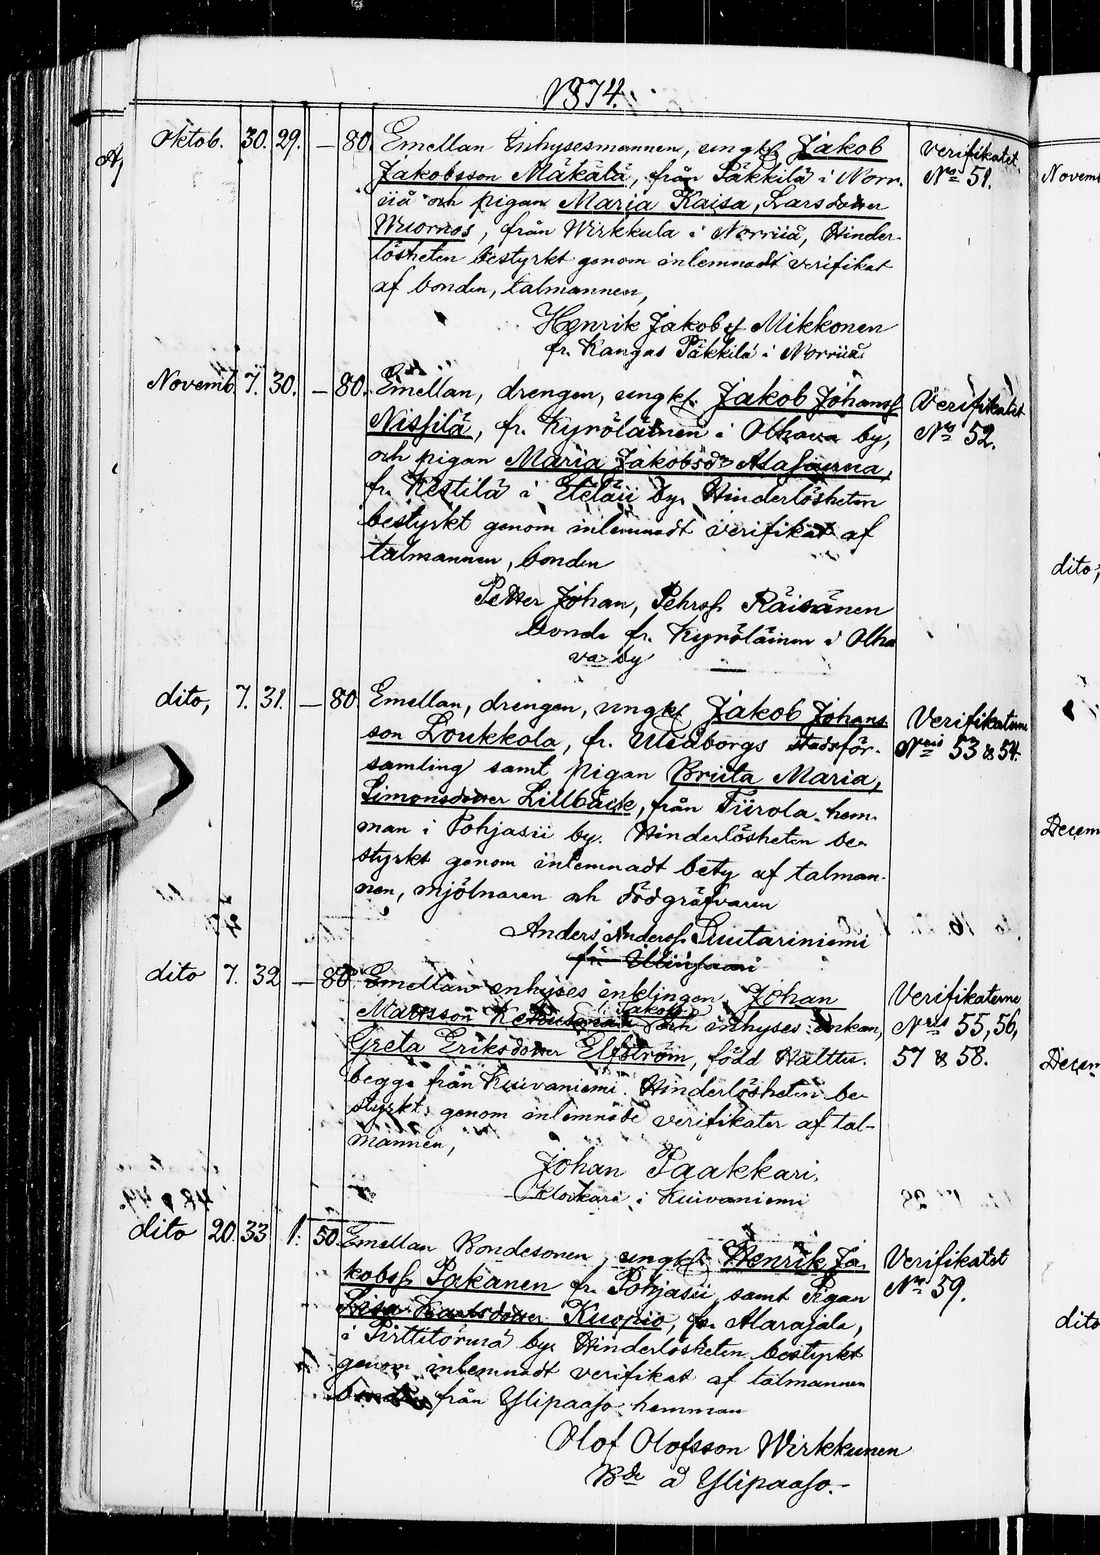 1874.
Oktob. 30. 29. — 80. Emellan Inhysesmannen, ungk. Jakob
Jakobsson Mäkälä, från Päkkilä i Norr-
iiå och pigan Maria Kaisa, Larsdotter
Wuornos, från Wirkkula i Norriiå, Hinder-
lösheten bestyrkt genom inlemnadt verifikat
af bonden, talmannen,
Henrik Jakobsf Mikkonen
fr. Kangas Päkkilä i Norriiå
Verifikatet
No 51.
Novemb. 7. 30. — 80. Emellan, drengen, ungk. Jakob Johansf
Nissilä, fr. Kyröläinen i Olhava by,
och pigan Maria Jakobsdr Alasaarna,
fr. Kestilä i Eteläii by. Hinderlösheten
bestyrkt genom inlemnadt verifikat af
talmannen, bonden
Petter Johan, Pehrsf Räisänen
bonde fr. Kyröläinen i Olha
va by
Verifikatet
No 52.
dito, 7. 31. — 80 Emellan, drengen, ungk. Jakob Johans
son Loukkola, fr. Uleåborgs stadsför-
samling samt pigan Briita Maria,
Simonsdotter Lillbäck, från Tiirola hem-
man i Pohjasii by. Hinderlösheten be-
styrkt genom inlemnadt bety af talman-
nen, mjölnaren och
Anders Andersf. Suutariniemi
Verifikaterne
Nris 53 & 54.
dito 7. 32 — 80 Emellan inhyses enklingen Johan
Mattsson och inhyses enkan,
Greta Eriksdotter Elfström, född Halttu.
begge från Kuivaniemi. Hinderlösheten be-
styrkt genom inlemnade verifikater af tal-
mannen,
Johan Paakkari.
Klockare i Kuivaniemi
Verifikaterne
Nris 55, 56,
57 & 58.
dito 20. 33 1. 50. Emellan Bondesonen, ungk. Henrik Ja-
kobsf Pakanen fr. Pohjasii, samt Pigan
Lisa Larsdotter Kuopio, fr. Alarajala,
i Pirttitörmä by. Hinderlösheten bestyrkt
genom inlemnadt verifikat af talmannen
bonden från Ylipaaso hemman
Olof Olofsson Wirkkunen
Bde å Ylipaaso.
Verifikatet
No 59.
Novemb
dito,
Decem
Decem
dito